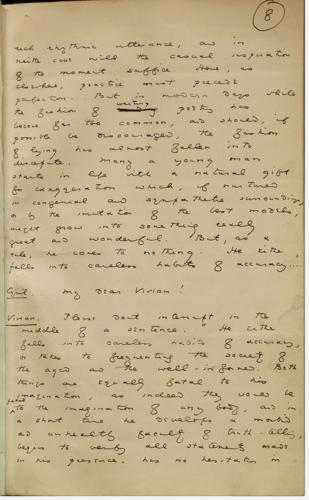 8
such rhythmic utterance, and in
neither case will the casual inspiration
of the moment suffice. Here, as
elsewhere, practice must precede
perfection. But in modern days while
writing
the fashion of poetry has
become far too common, and should, if
possible be discouraged, the fashion
of lying has almost fallen into
disrepute. Many a young man
starts in life with a natural gift
for exaggeration which, if nurtured
in congenial and sympathetic surroundings,
or by the imitation of the best models,
might grow into something really
great and wonderful. But, as a
rule, he comes to nothing. He either
falls into careless habits of accuracy....
Cyril My dear Vivian!
Vivian. Please dont interrupt in the
middle of a sentence. "He either
falls into careless habits of accuracy,
or takes to frequenting the society of
the aged and the well-informed. Both
things are equally fatal to his
imagination, as indeed they would be
fatal
to the imagination of any body, and in
a short time he develops a morbid
and unhealthy faculty of truth-telling,
begins to verify all statements made
in his presence, has no hesitation in